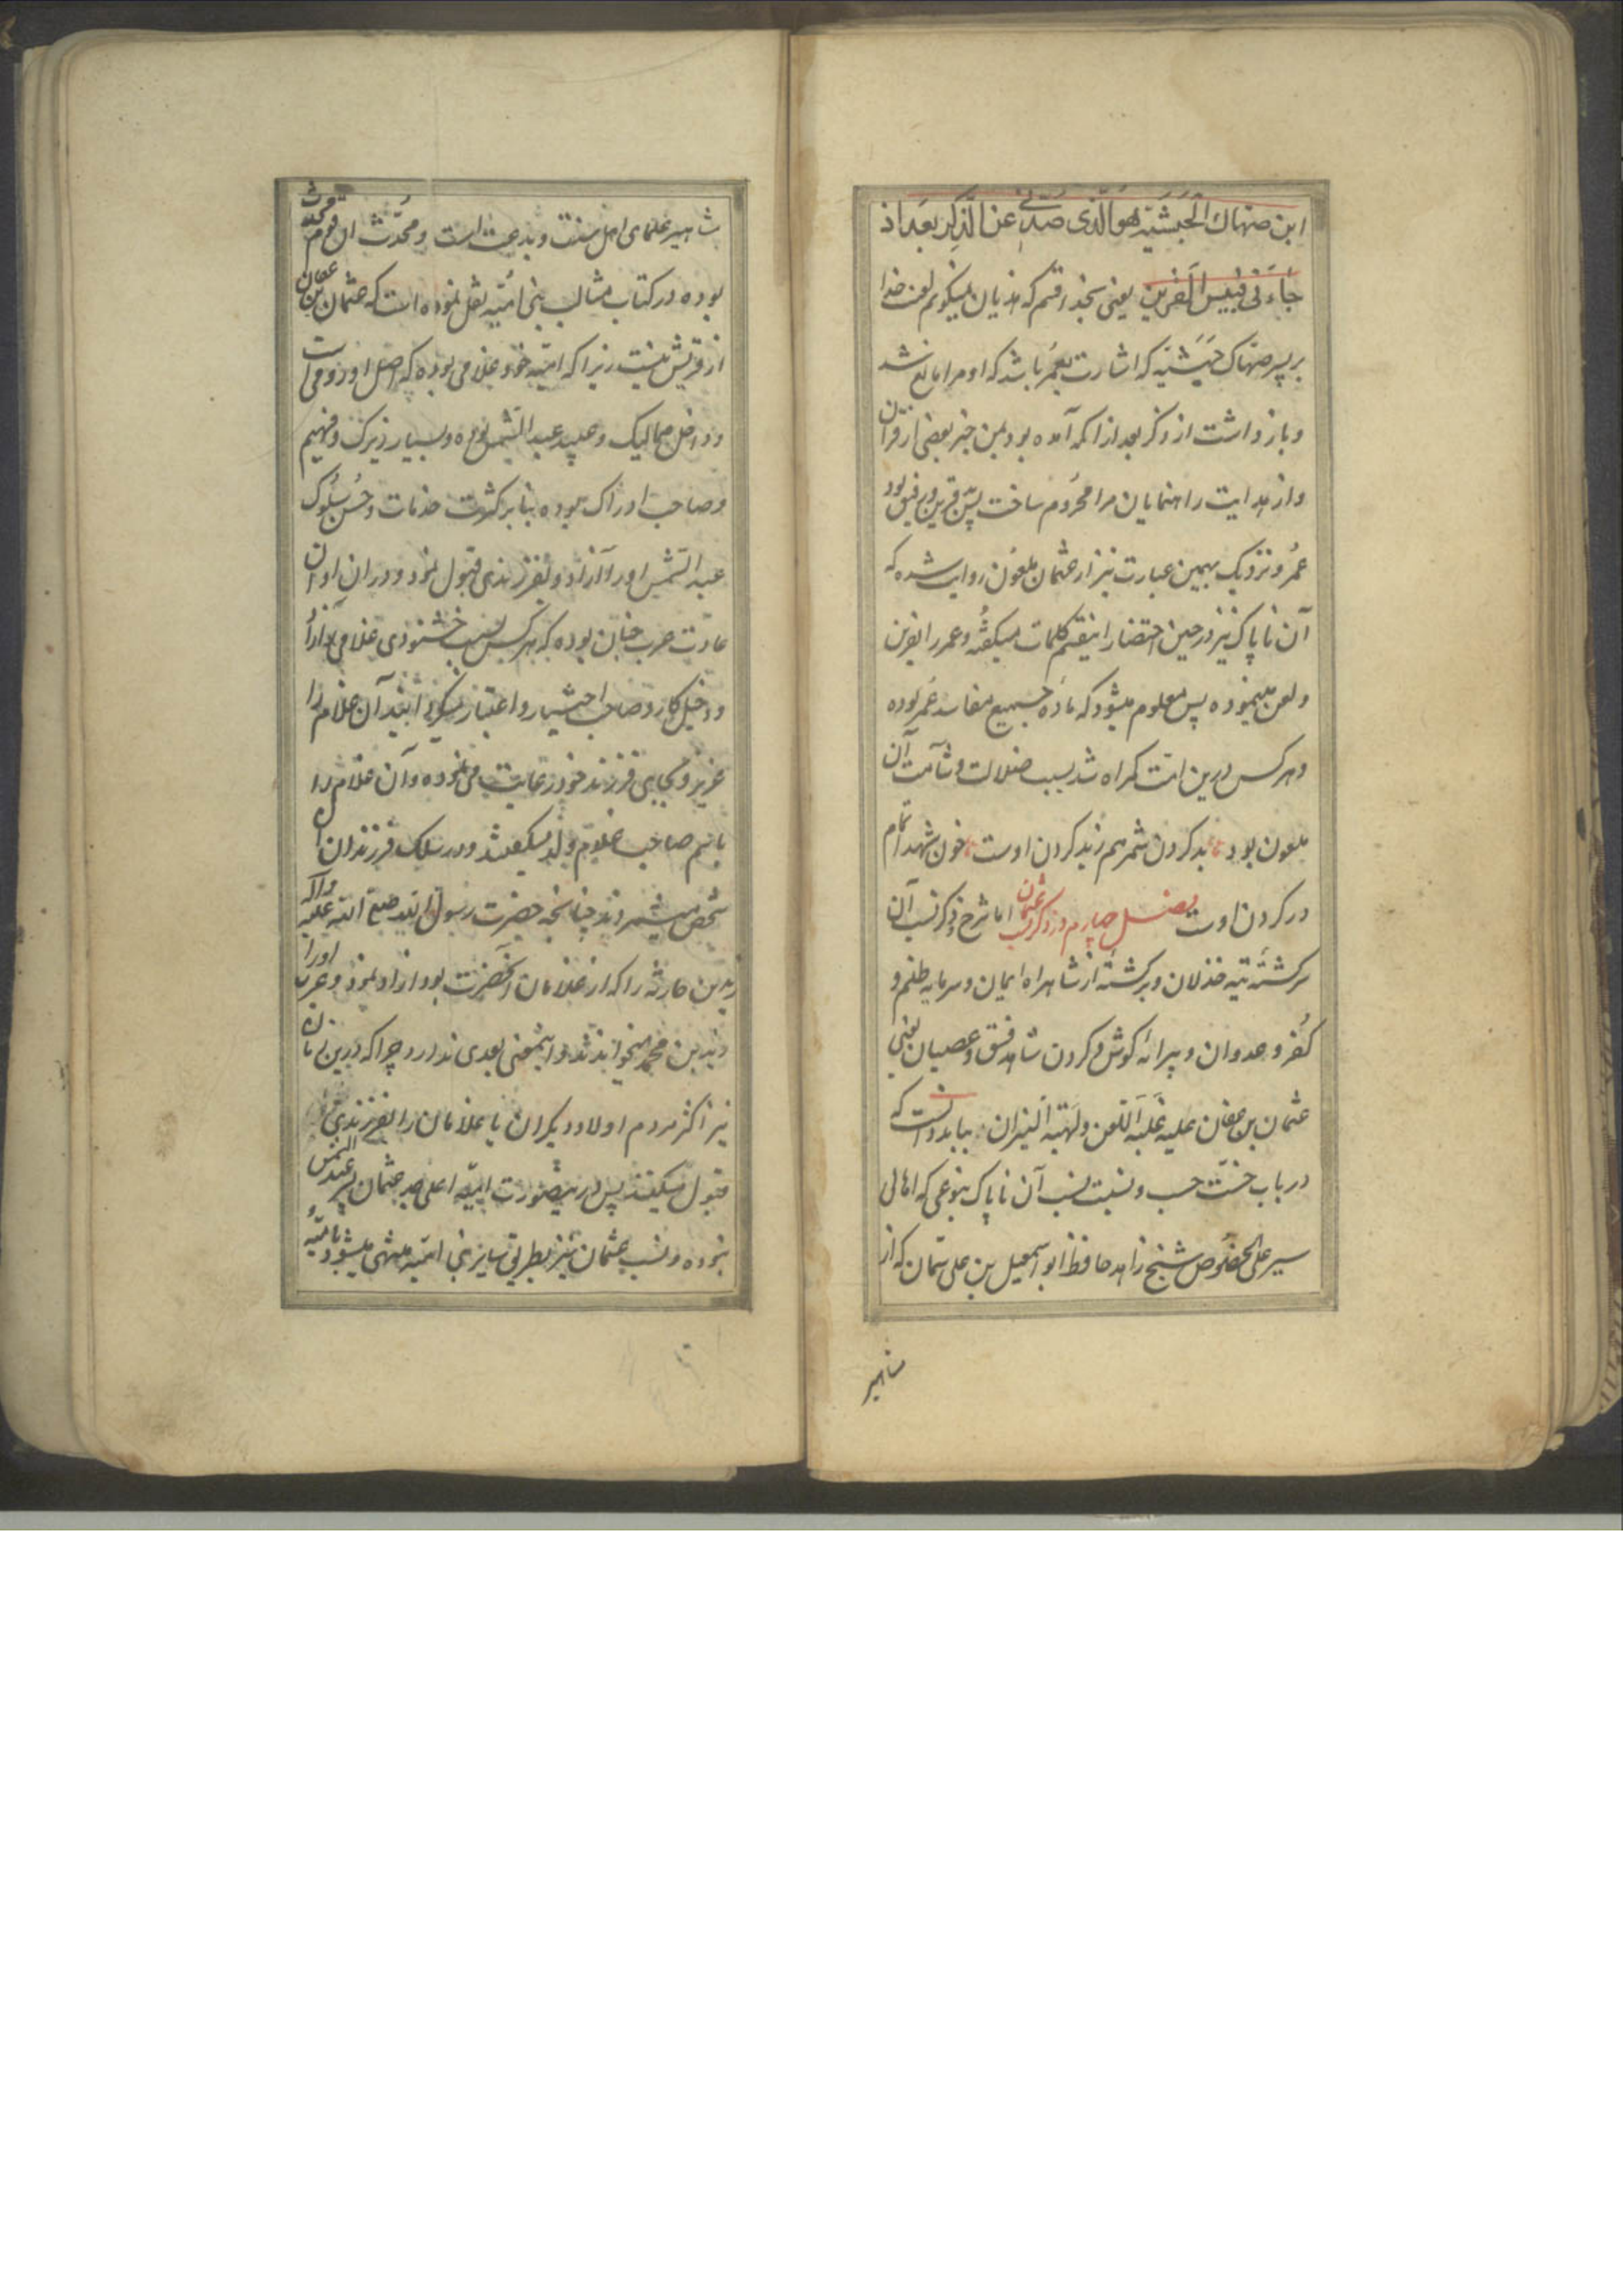 ابن صهاك الحبشية هو الذى صدنى عن الذكر بعد اذ
جاءنى فبئس القرين یعنی بخدا قسم که هذیان نمیگویم لعن خدا
بر پسر صهاک حبشیه که اشارت بعمر باشد که او مرا مانع شد
و باز داشت از ذکر بعد از آنکه آمده بود بمن خبر یعنی از قرآن
و از هدایت راهنمایان مرا محروم ساخت پس قرین و رفیق بود
عمر و نزدیک بهمین عبارت نیز از عثمان ملعون روایت شده که
آن ناپاک نیز در حین احتضار اینقسم کلمات میگفته و عمر را نفرین
و لعن مینموده پس معلوم میشود که ماده جمیع مفاسد عمر بوده
و هر کس درین امت گمراه شد بسبب ضلالت و شآمت آن
ملعون بود بد کردن شمر هم زبد کردن اوست خون شهدا تمام
در گردن اوست فصل چهارم در ذکر نسب عثمان اما شرح ذکر نسب آن
سرگشته تیه خذلان و برگشته از شاهراه ایمان و سرمایه ظلم و
کفر و عدوان و پیرایه گوش و گردن شاهد فسق و عصیان یعنی
عثمان بن عفان علیه غلبه اللعن و لهبة النیران بباید دانست که
در باب خست حسب و نسبت نسب آن ناپاک بنوعی که اهالی
سیر علی الخصوص شیخ زاهد حافظ ابو اسمعیل بن علی سمان که از
شاهیر
شاهیر علمای اهل سنت و بدعت است و محدث ان قوم
بوده در کتاب مثالب بنی امیه نقل نموده است که عثمان بن عفان
از قریش نیست زیرا که امیه خود غلامی بوده که اصل او رومی است
و داخل ممالیک و عبید عبد الشمس بوده و بسیار زیرک و فهیم
و صاحب ادراک بوده بنابر کثرت خدمات و حسن سلوک
عبد الشمس او را آزاد و بفرزندی قبول نمود و در ان اوان
عادت عرب چنان بوده که هر کس بسبب خشنودی غلامی را آزاد
و دخیل کار و صاحب اختیار و اعتبار میگردانیند آن غلام را
عزیز و بجای فرزند خود رعایت می نموده و آن غلام را
باسم صاحب غلام ولد میگفتند و در سلک فرزندان آن
شخص میشمردند چنانچه حضرت رسول الله صلی الله علیه و آله
زید بن حارثه را که از غلامان آنحضرت بود ازاد نمود و عرب او را
زید بن محمد میخواندند و اینمعنی بعدی ندارد چرا که درین زمان
نیز اکثر مردم اولاد دیگران یا غلامان را بفرزندی
قبول میکنند پس درینصورت امیه اعلی جد عثمان پسر عبد الشمس
نبوده و نسب عثمان نیز بطریق سایر بنی امیه منتهی میشود بامیه